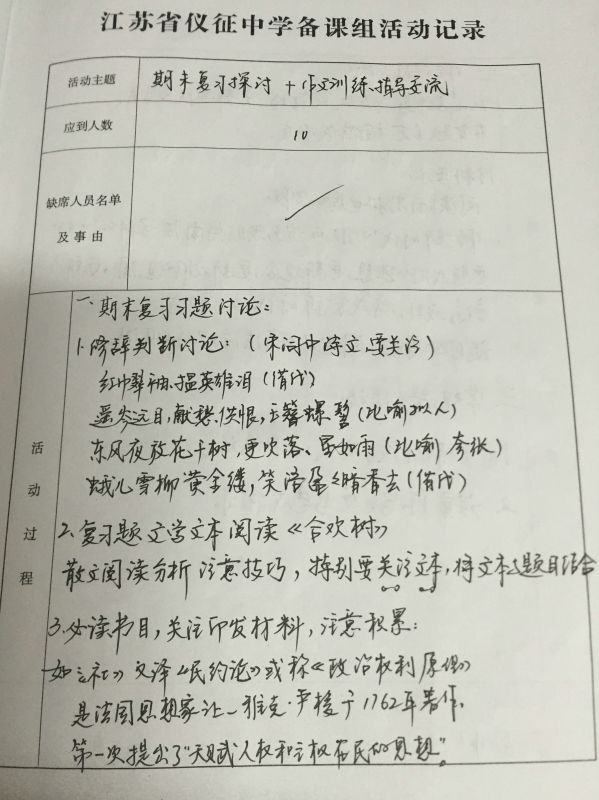 江苏省仪征中学备课组活动记录
活动主题
期末复习探讨 + 作文训练、指导交流
应到人数
10
缺席人员名单
及事由
活动过程
一、期末复习习题讨论：
1. 修辞判断讨论：（宋词中 要关注）
红巾翠袖，揾英雄泪（借代）
遥岑远目，献愁供恨，玉簪螺髻（比喻 拟人）
东风夜放花千树，更吹落、星如雨（比喻 夸张）
蛾儿雪柳黄金缕，笑语盈盈暗香去（借代）
2. 复习题 文学文本阅读《合欢树》
散文阅读分析 注意技巧，特别要关注文本，将文本与题目结合
3. 必读书目，关注印发材料，注意积累：
如《社》又译《民约论》或称《政治权利原理》
是法国思想家让-雅克·卢梭于1762年著作，
第一次提出了"天赋人权和主权在民的思想"。